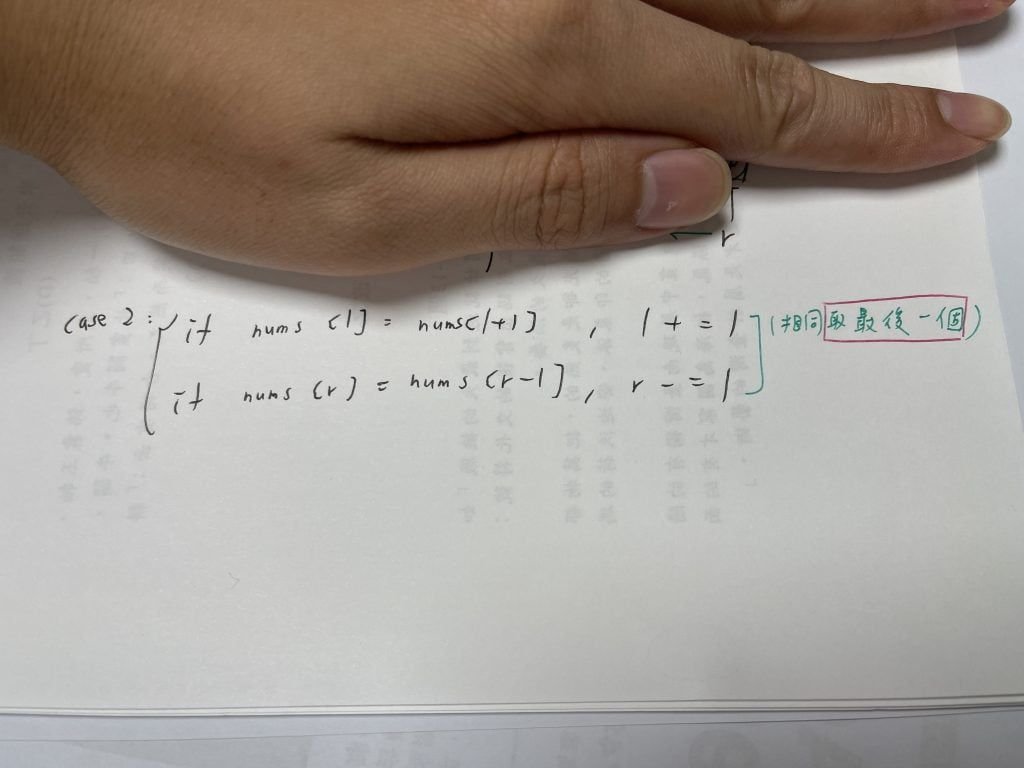 r
case 2 : if nums [l] = nums[l+1] , l += 1 (相同取最後一個)
if nums [r] = nums [r-1] , r -= 1